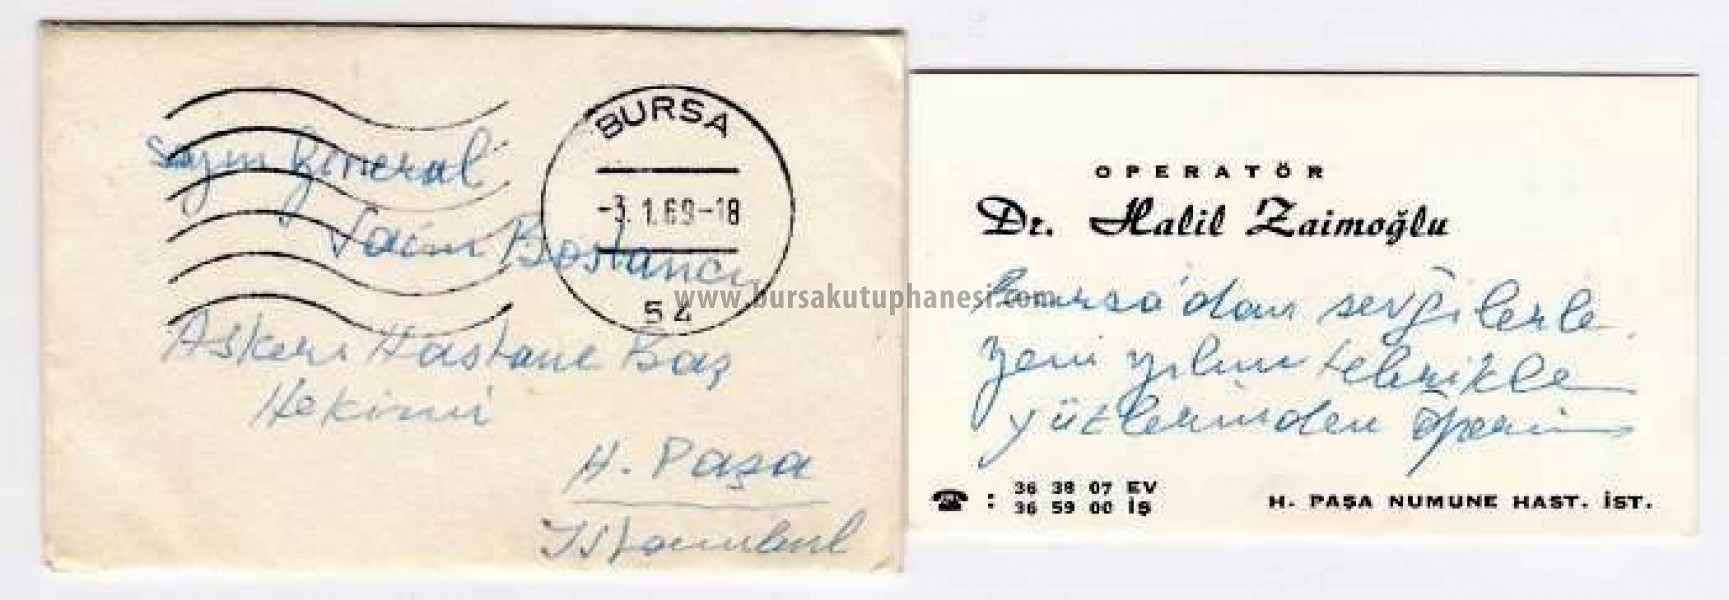 BURSA
-3. 1.69-18
52
Sayın General
Saim Bostancı
Askeri Hastane Baş
Hekimi
H. Paşa
Istanbul
www.bursakutuphanesi.com
OPERATÖR
Dr. Halil Zaimoğlu
Bursa'dan sevgilerle
yeni yılını tebrikle
gözlerinden öperim
36 38 07 EV
36 59 00 İŞ
H. PAŞA NUMUNE HAST. İST.